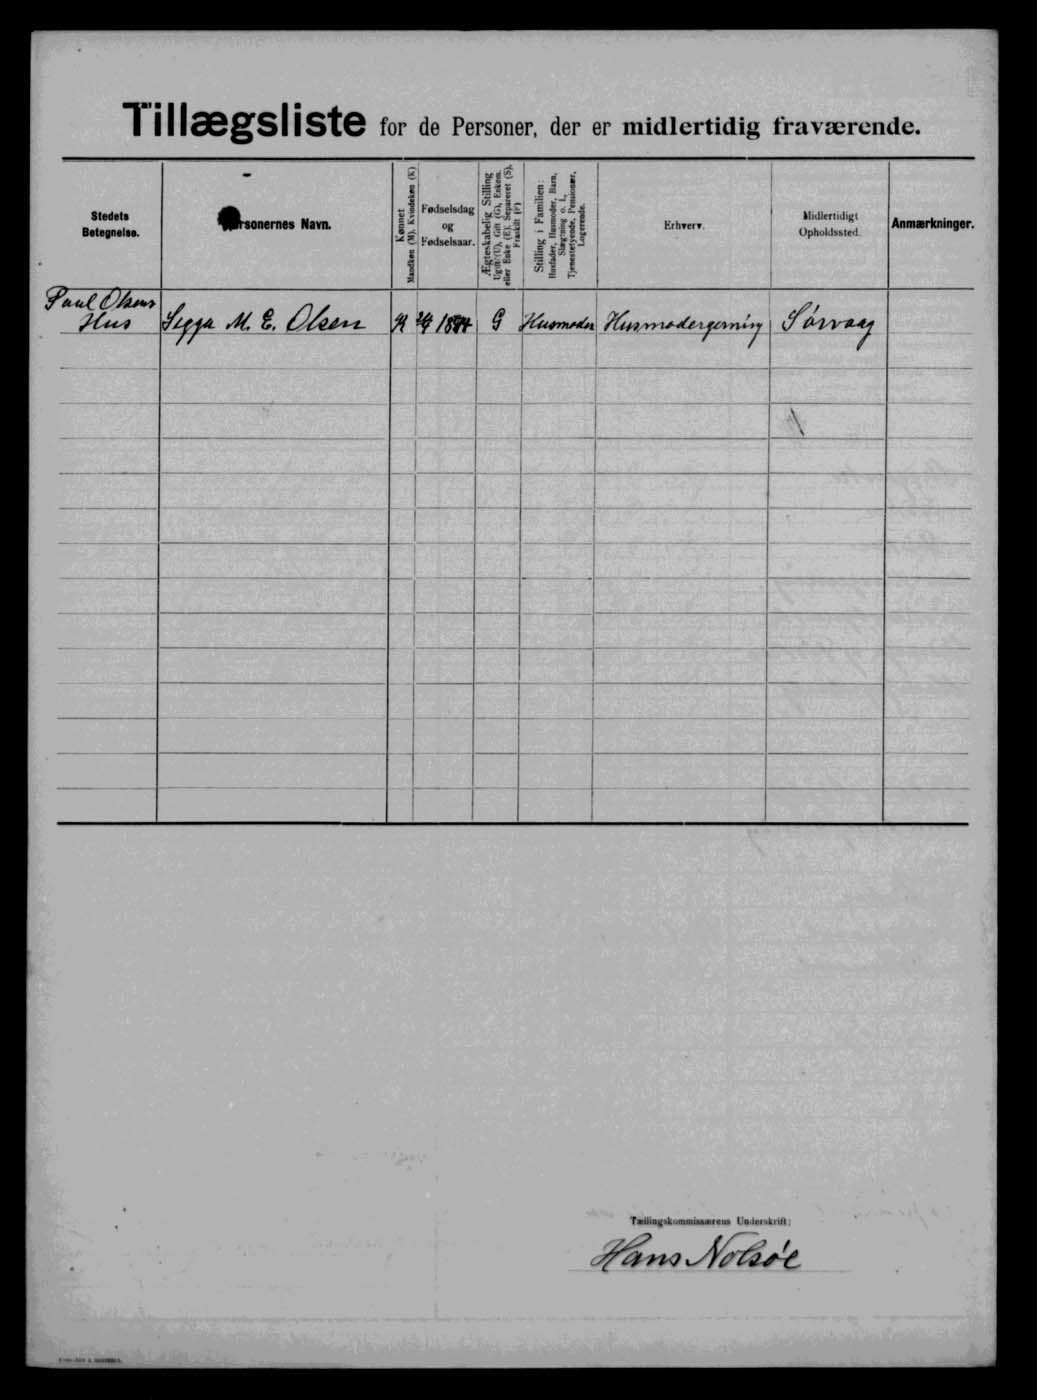 Tillægsliste for de Personer, der er midlertidig fraværende.
Stedets
Betegnelse.
Personernes Navn.
Kønnet
Mandkøn (M). Kvindekøn (K)
Fødselsdag
og
Fødselsaar.
Ægteskabelig Stilling
Ugift (U), Gift (G), Enkem.
eller Enke (E), Separeret (S),
Fraskilt (F)
Stilling i Familien:
Husfader, Husmoder, Barn,
Slægtning o. l.,
Tjenestetyende, Pensionær,
Logerende.
Erhverv.
Midlertidigt
Opholdssted.
Anmærkninger.
Paul Olsens
Hus Sigga M. E. Olsen K G Husmoder Husmodergerning Sórvaag
Tællingskommissærens Underskrift:
Hans Nolsóe